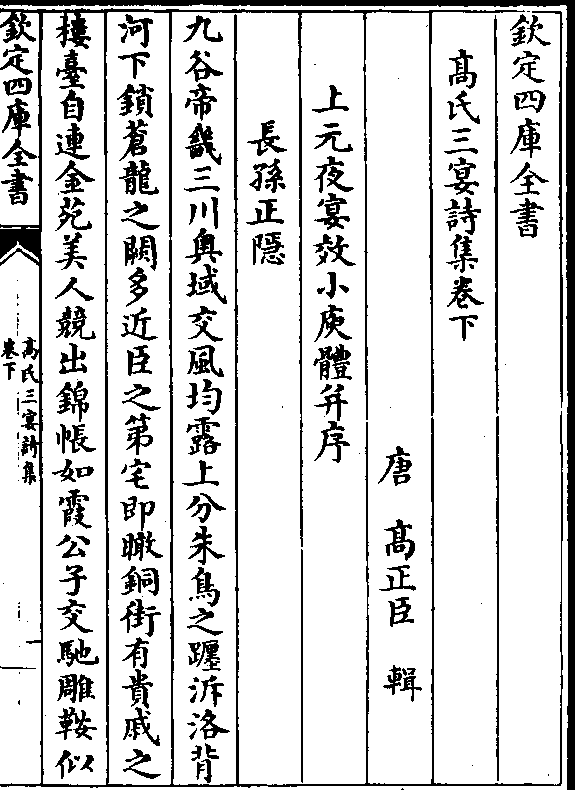 欽定四庫全書
高氏三宴詩集卷下
唐 高正臣 輯
上元夜宴效小庾體并序
長孫正隱
九谷帝畿三川奥域交風均露上分朱鳥之躔泝洛背
河下鎖蒼龍之闕多近臣之第宅即瞰銅街有貴戚之
樓臺自連金苑美人競出錦帳如霞公子交馳雕鞍似
欽定四庫全書
高氏三宴詩集
卷下
一